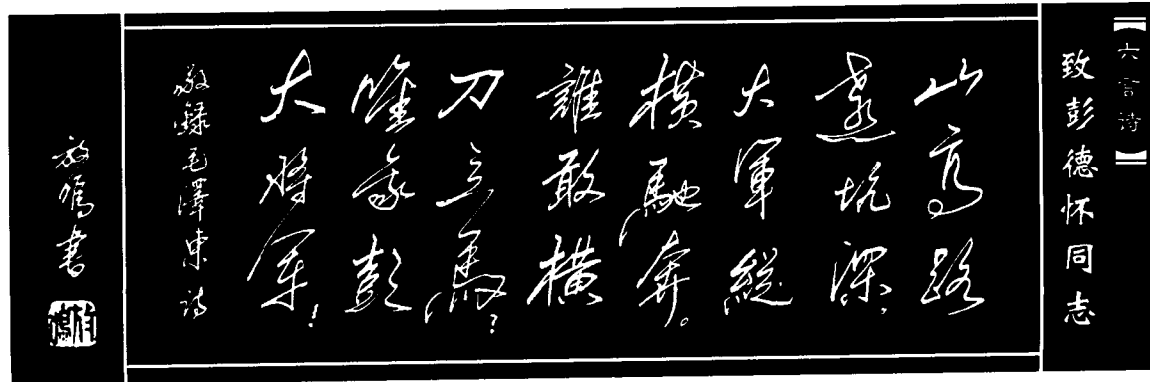 【六言诗】
致彭德怀同志
山高路
遠坑深，
大軍縱
橫馳奔。
誰敢橫
刀立馬？
唯我彭
大將軍！
敬録毛澤東詩
书